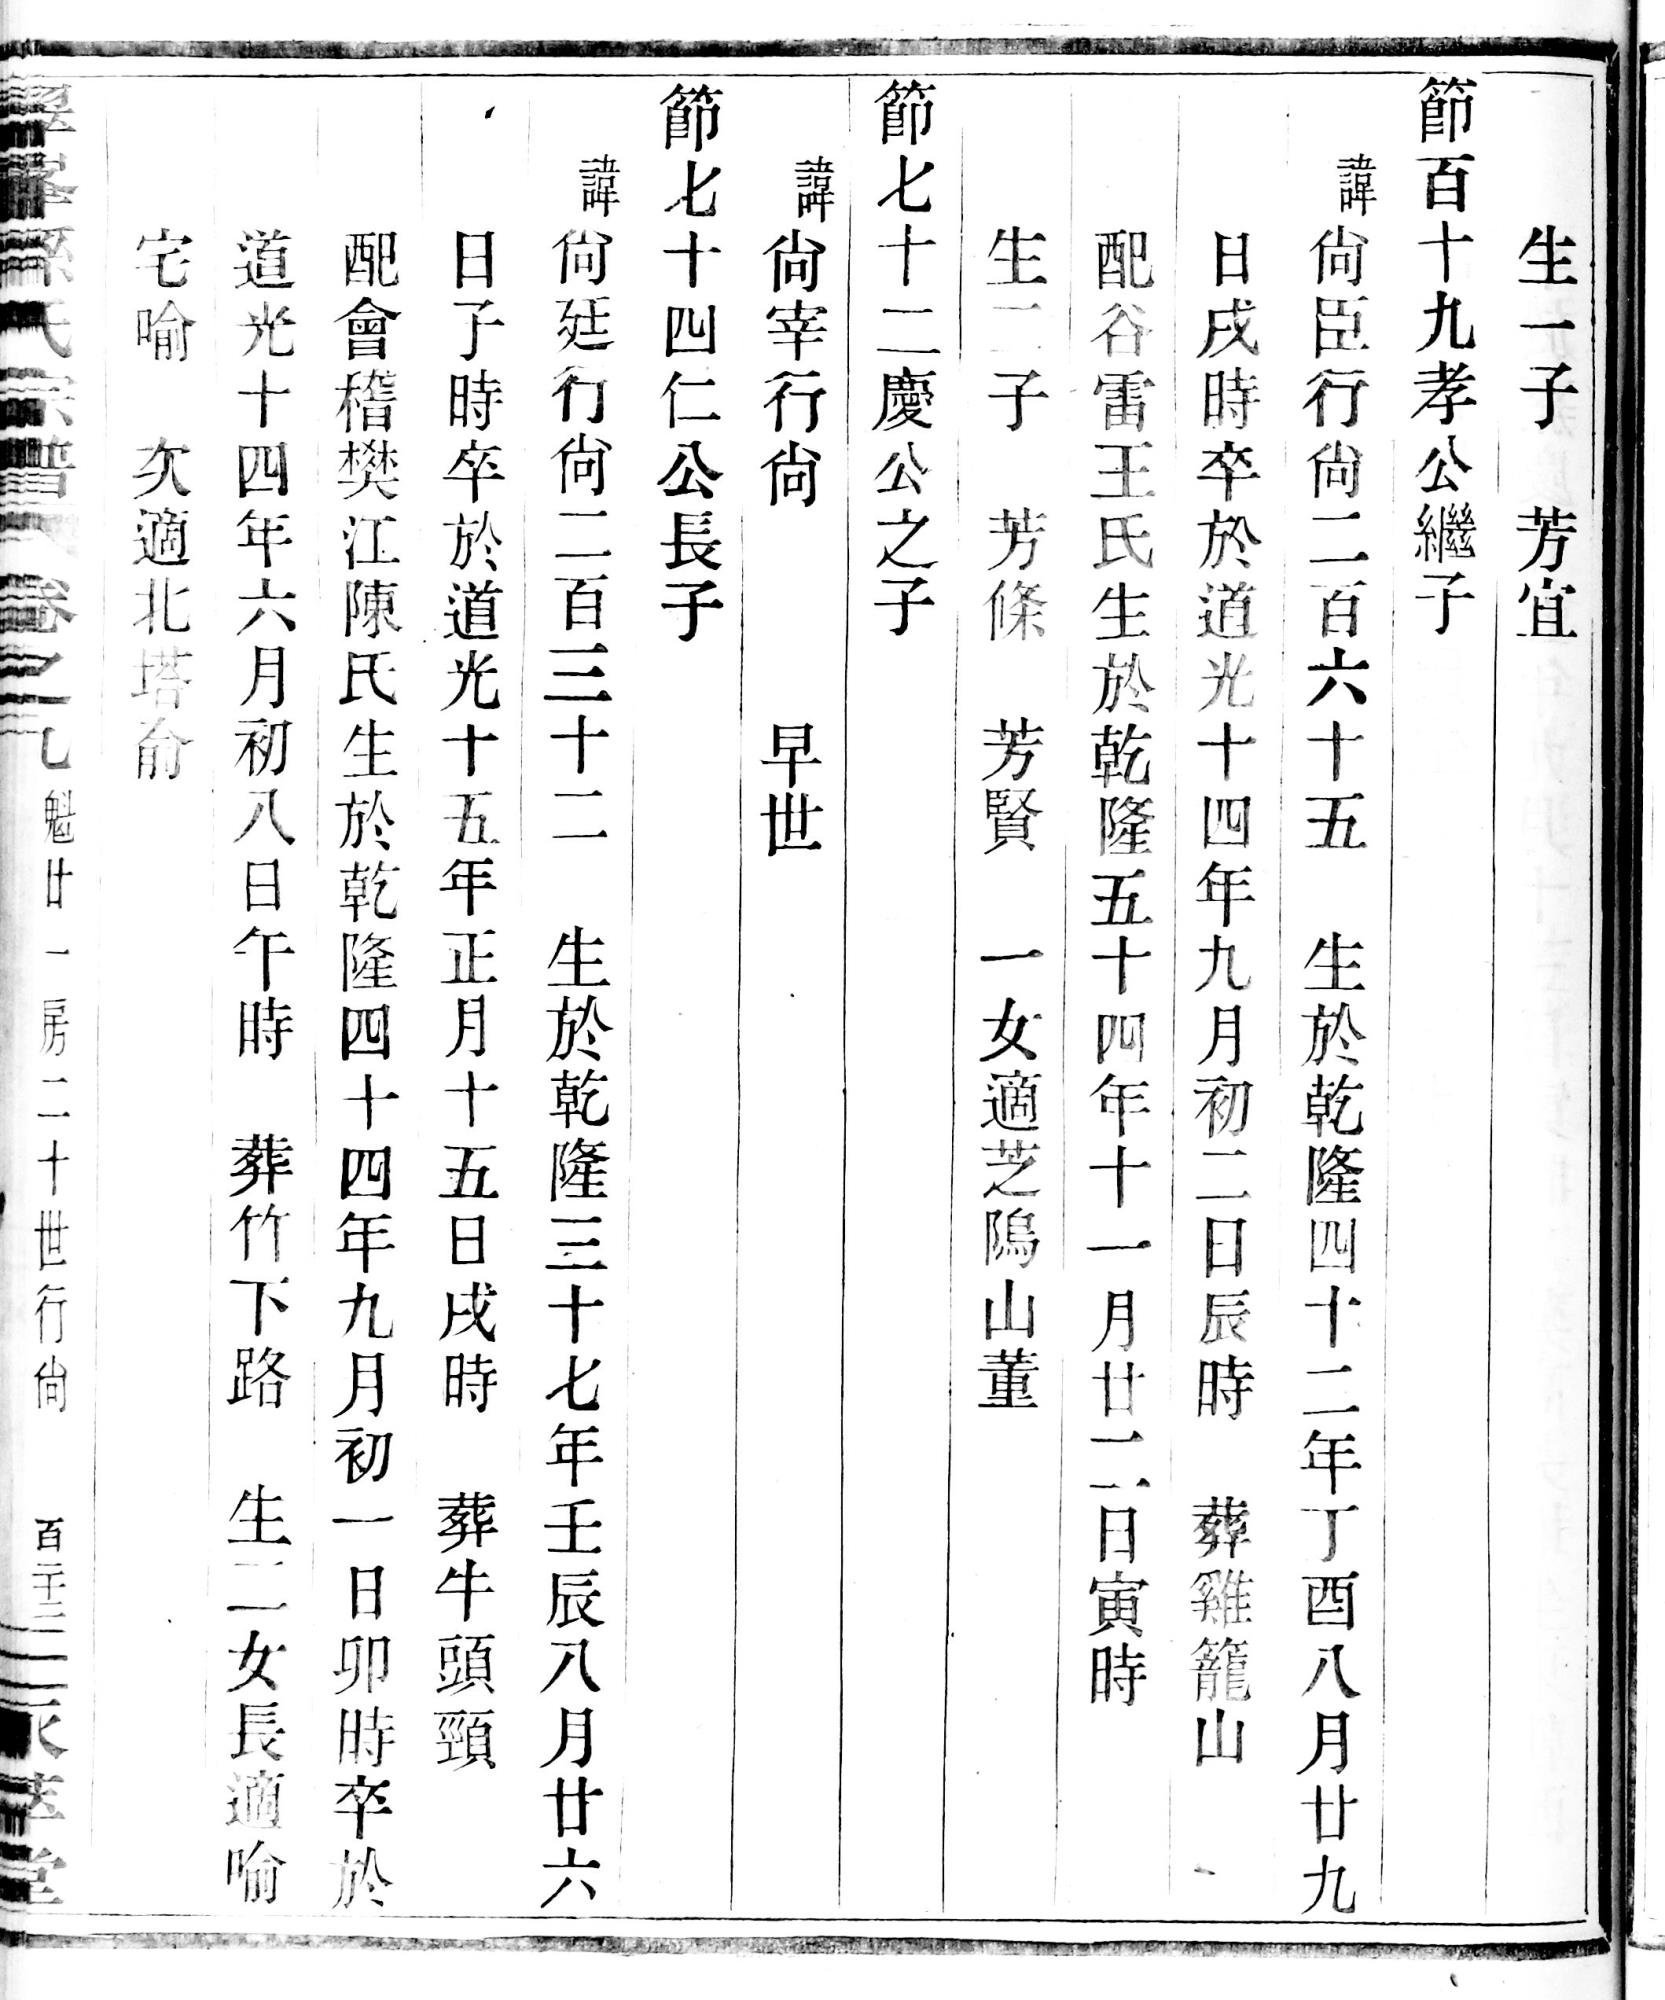 生一子　芳宜
節百十九孝公繼子
諱尙臣行尙二百六十五　生於乾隆四十二年丁酉八月廿九
日戌時卒於道光十四年九月初二日辰時　葬雞籠山
配谷雷王氏生於乾隆五十四年十一月廿二日寅時
生二子　芳條　芳賢　一女適芝隖山董
節七十二慶公之子
諱尙宰行尙　　　早世
節七十四仁公長子
諱尙延行尙二百三十二　生於乾隆三十七年壬辰八月廿六
日子時卒於道光十五年正月十五日戌時　葬牛頭頸
配會稽樊江陳氏生於乾隆四十四年九月初一日卯時卒於
道光十四年六月初八日午時　葬竹下路　生二女長適喻
宅喻　次適北塔俞
孫氏宗譜　卷之九　魁廿一房二十世行尙　百三十二　堂